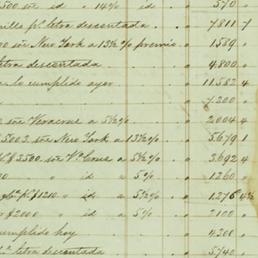 500 sre id a 14% id 570
illo pr letra descontada 7811 7
00 sre New York a 13½% premio 1589
letra descontada 4.800
a lo cumplido ayer 11.582 4
7200
sre Veracruz a 5½% 2004 4
5003 sre New York a 13½% 5.679 1
pr $3500 sre Va Cruz a 5½% 3692 4
id a 5% 1260
pr $1210 id a 5½% 1.276 4½
o $2000 id a 5% 2100
cumplido hoy 4200
letra descontada 5740